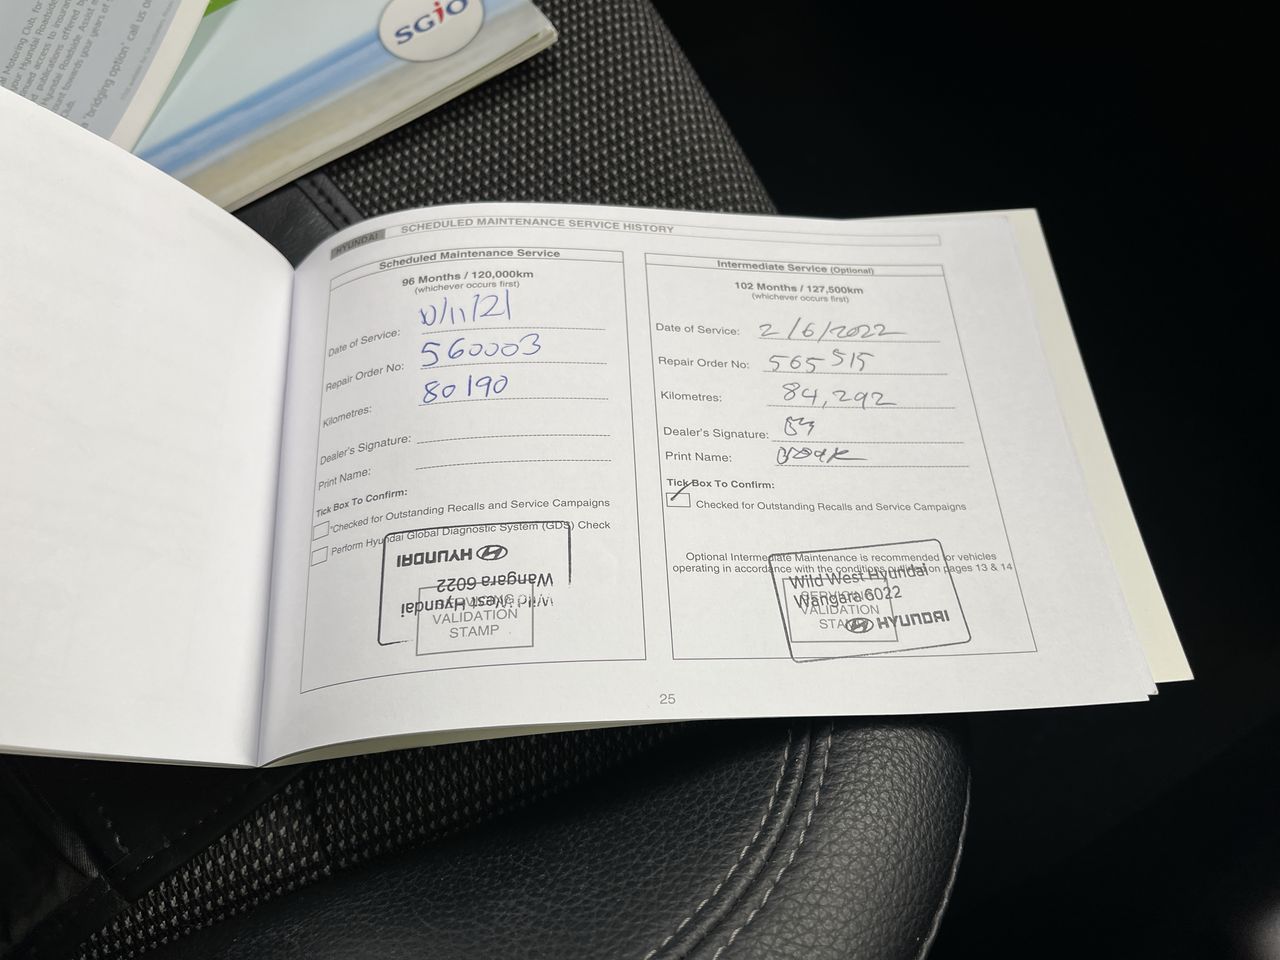 SGIO
al Motoring Club, for
your Hyundai Roadside
publications offered by
Hyundai Roadside Assist
ount towards your years of
Club.
a "bridging option" call us on
HYUNDAI
SCHEDULED MAINTENANCE SERVICE HISTORY
Scheduled Maintenance Service
96 Months / 120,000km
(whichever occurs first)
Date of Service: /11/21
Repair Order No: 560003
Kilometres: 80190
Dealer's Signature:
Print Name:
Tick Box To Confirm:
*Checked for Outstanding Recalls and Service Campaigns
Perform Hyundai Global Diagnostic System (GDS) Check
HYUNDAI
Wangara 6022
Wild West Hyundai
SERVICING
VALIDATION
STAMP
Intermediate Service (Optional)
102 Months / 127,500km
(whichever occurs first)
Date of Service: 2/6/2022
Repair Order No: 565515
Kilometres: 84,292
Dealer's Signature:
Print Name:
Tick Box To Confirm:
Checked for Outstanding Recalls and Service Campaigns
Optional Intermediate Maintenance is recommended for vehicles
operating in accordance with the conditions outlined on pages 13 & 14
Wild West Hyundai
Wangara 6022
HYUNDAI
SERVICING
VALIDATION
STAMP
25